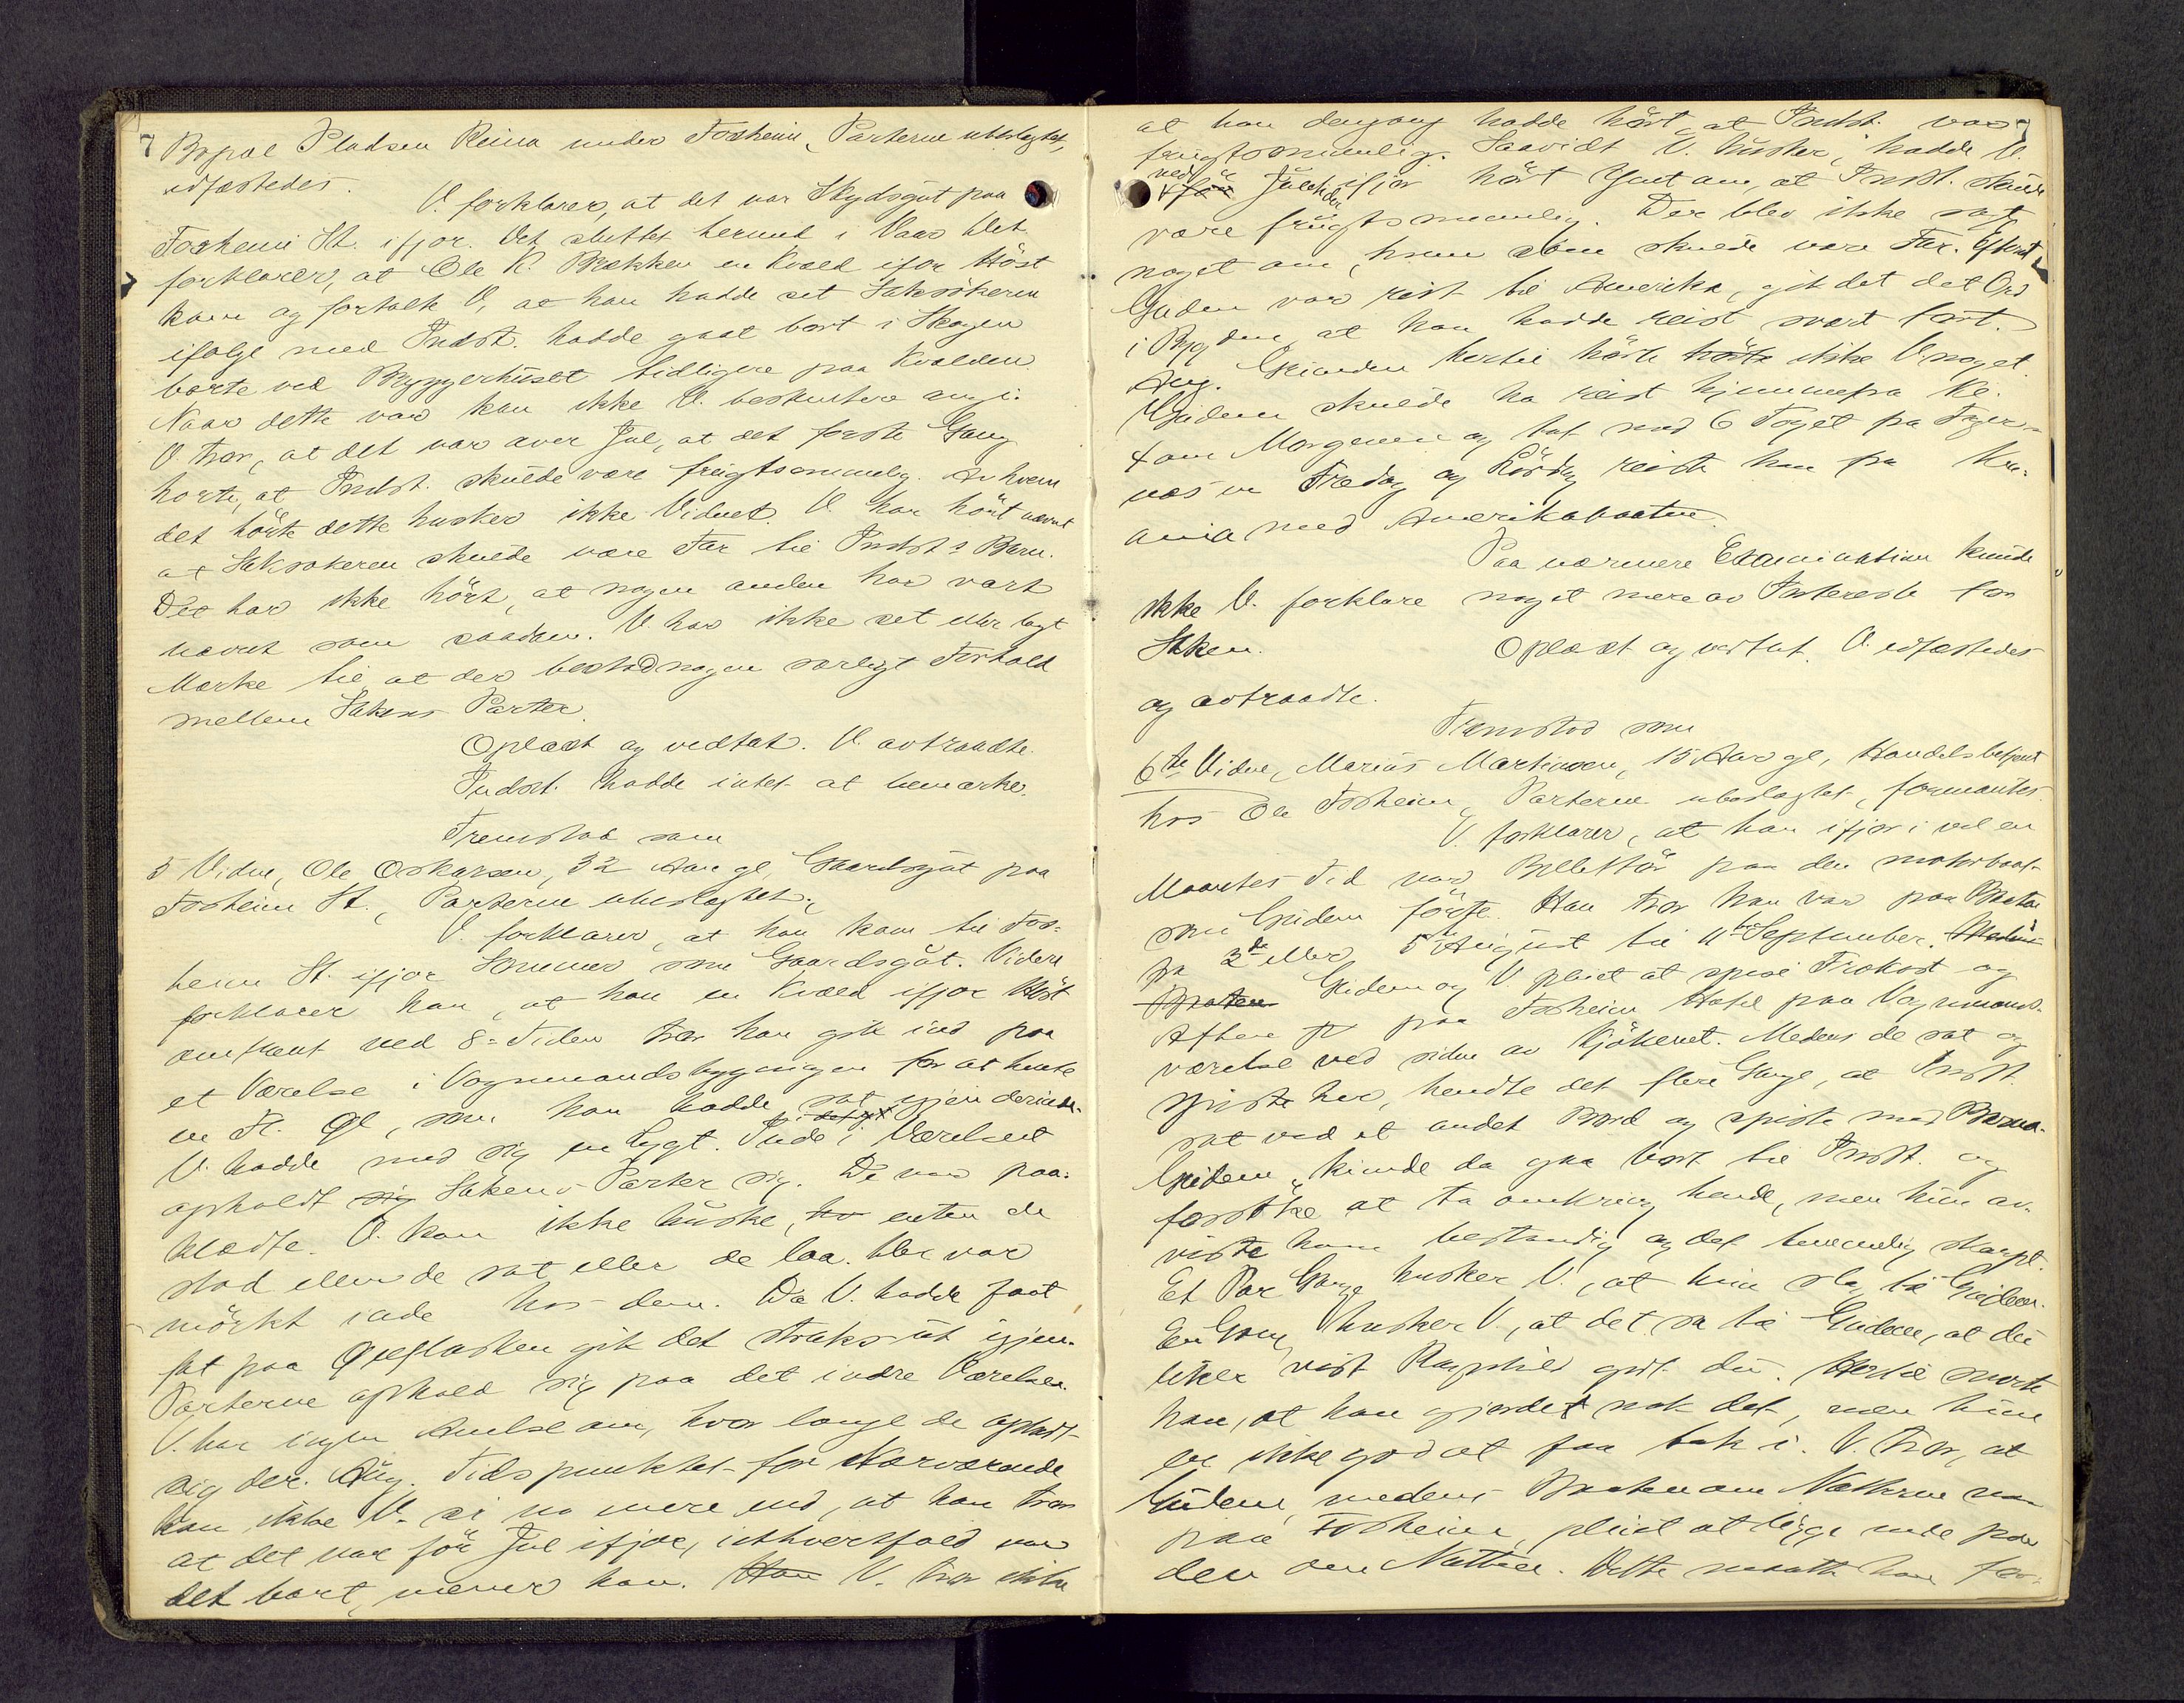 7 Bopæl Pladsen Reina under Fosheim, Parterne ubeslegtet,
edfæstedes.
V. forklarer, at det var Skydsgut paa
Fosheim St. ifjor. Det sluttet herved i Vaar. Det
forklarer, at Ole K. Brækken en Kvæld ifjor Höst
kom og fortalte V, at han hadde set Saksökeren
ifölge med Indst. hadde gaat bort i Skogen
borte ved Bryggerhuset tidligere paa Kvælden.
Naar dette var kan ikke V. bestemtere angi.
V. tror, at det var over Jul, at det förste Gang
hørte, at Indst. skulde være frugtsommelig. Av hvem
det hörte dette husker ikke Vidnet. V. har hört nævnt
at Saksökeren skulde være Far til Indst's Barn.
Det har ikke hört, at nogen anden har vært
nævnt som saadan. V. har ikke set eller lagt
Mærke til at der bestod nogen særlegt Forhold
mellem Sakens Parter.
Oplæst og vedtat. V. avtraadte.
Indst. hadde intet at bemærke.
Fremstod som
5 Vidne, Ole Oskarsen, 32 Aar gl, Gaardsgut paa
Fosheim St., Parterne ubeslegtet.
V. forklarer, at han kom til Fos-
heim St. ifjor Sommer som Gaardsgut. Videre
forklarer han, at han en Kvæld ifjor Höst
omtrent ved 8-Tiden tror han gik ind paa
et Værelse i Vognmandsbygningen for at hente
en Fl. Öl, som han hadde sat igjen derinde.
V. hadde med sig en Lygt. Inde i Værelset
opholdt sig Sakens Parter sig. De var paa-
klædte. V. kan ikke huske, enten de
stod eller de sat eller de laa. Der var
mörkt inde hos dem. Da V. hadde faat
fat paa Ölflasken gik det straks ut igjen.
Parterne ophold sig paa det indre Værelse.
V. har ingen Anelse om, hvor længe de opholdt
sig der. Ang. Tidspunktet for Nærværende
kan ikke V. si no mere end, at han tror
at det var för Jul ifjor, ithvertfald var
det bart, mener han. Han V. tror ikke
at han dengang hadde hört at Indst. var
frugtsommelig. Saavidt V. husker, hadde V.
ved Juletider ifjor hört Ymt om, at Indst. skulde
være frugtsommelig. Der blev ikke sagt
noget om, hvem som skulde være Far. Efterat
Gudem var reist til Amerika, gik det det Ord
i Bygden at han hadde reist svært fort.
Ang. Grunden hertil hörte hörte ikke V. noget.
Gudem skulde ha reist hjemmefra Kl.
4 om Morgenen og tat med 6 Toget fra Fager-
næs en Fredag og Lördag reiste han fra Kri-
ania med Amerikabaaten.
Paa nærmere Examination kunde
ikke V. forklare noget mere av Interesse for
Saken. Oplæst og vedtat. V. edfæstedes
og avtraadte.
Fremstod som
6te Vidne, Marius Martinsen, 15 Aar gl, Handelsbetjent
hos Ole Fosheim, Parterne ubeslegtet, formantes.
V. forklarer, at han ifjor i vel en
Maaneds Tid var Billettör paa den motorbaat
som Gudem förte. Han tror han var paa Baaten
fra 3de eller 5te August til 11te September.
Baaten Gudem og V. pleiet at spise Frokost og
Aftens paa Fosheim Hotel paa Vognmands-
værelse ved siden av Kjökkenet. Medens de sat og
spiste her, hendte det flere Gange, at Indst.
sat ved et andet Bord og spiste med Barna.
Gudem kunde da gaa bort til Indst. og
forsöke at ta omkring hende, men hun av-
viste ham bestandig og det temmelig skarpt.
Et Par Gange husker V., at hun slog til Gudem.
En Gang husker V., at det sa til Gudem, at du
liker vist Ragnhild godt du. Hertil svarte
han, at han gjorde nok det, men hun
er ikke god at faa tak i. V. tror, at
Gudem, medens Baaten om Nætterne var
paa Fosheim, pleiet at ligge nede paa
den om Natten. Dette maatte han for-